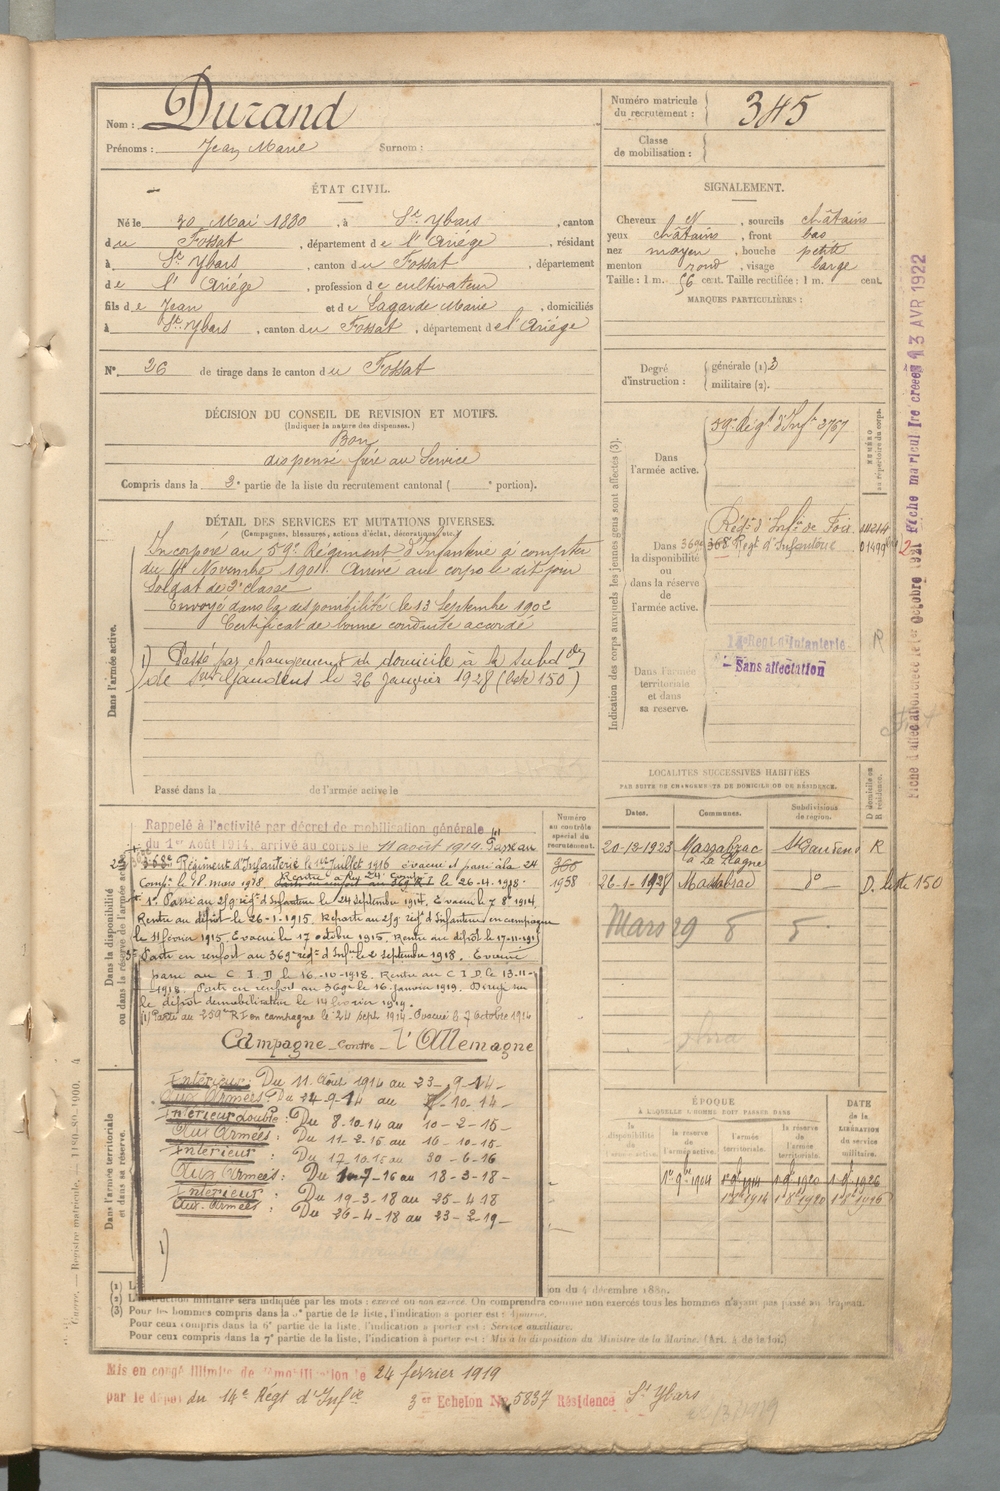 Nom : Durand
Prénoms : Jean Marie Surnom :
Numéro matricule du recrutement : 345
Classe de mobilisation :
ÉTAT CIVIL.
Né le 30 Mai 1880, à St Ybars, canton
du Fossat, département de l'Ariége, résidant
à St Ybars, canton du Fossat, département
de l'Ariége, profession de cultivateur
fils de Jean et de Lagarde Marie, domiciliés
à St Ybars, canton du Fossat, département de l'Ariége
N° 26 de tirage dans le canton du Fossat
SIGNALEMENT.
Cheveux N, sourcils châtains
yeux châtains, front bas
nez moyen, bouche petite
menton rond, visage large
Taille : 1 m. 56 cent. Taille rectifiée : 1 m. cent.
MARQUES PARTICULIÈRES :
Degré d'instruction : générale (1) 3
militaire (2).
DÉCISION DU CONSEIL DE REVISION ET MOTIFS.
(Indiquer la nature des dispenses.)
Bon
dispensé frère au Service
Compris dans la 3e partie de la liste du recrutement cantonal ( e portion).
DÉTAIL DES SERVICES ET MUTATIONS DIVERSES.
(Campagnes, blessures, actions d'éclat, décorations, etc.)
Dans l'armée active.
Incorporé au 59e Régiment d'Infanterie à compter
du Novembre 1901. Arrivé au corps le dit jour
Soldat de 2e classe
Envoyé dans la disponibilité le 13 Septembre 1902
Certificat de bonne conduite accordé
1) Passé par changement de domicile à la subdon
de St Gaudens le 26 Janvier 1928 (liste 150)
Passé dans la de l'armée active le
Indication des corps auxquels les jeunes gens sont affectés (3).
NUMÉRO au répertoire du corps.
Dans l'armée active.
59e Régt d'Infie 3767
Dans la disponibilité ou dans la réserve de l'armée active.
Régt d'Infie de Foix
369e 368 Regt d'Infanterie
Dans l'armée territoriale et dans sa réserve.
14e Régt d'Infanterie
Sans affectation
R
LOCALITÉS SUCCESSIVES HABITÉES
PAR SUITE DE CHANGEMENTS DE DOMICILE OU DE RÉSIDENCE.
Dates. Communes. Subdivisions de région. D domicile ou R résidence.
20-12-1923 Massabrac à La Plagne St Gaudens R
26-1-1928 Massabrac do D. liste 150
Mars 29 8 5
Numéro au contrôle spécial du recrutement.
1958
Dans la disponibilité ou dans la réserve de l'armée active
Rappelé à l'activité par décret de mobilisation générale
du 1er Août 1914, arrivé au corps le 11 août 1914. Passé au
Régiment d'Infanterie le 1er Juillet 1916 évacué et passé à la 24
Comp. le 18 mars 1918 le 26-4-1918.
1° Passé au 259 régt d'Infanterie le 24 septembre 1914. Evacué le 7 8bre 1914.
Rentré au dépôt le 26-1-1915. Reparti au 259 régt d'Infanterie en campagne
le 11 février 1915. Evacué le 17 octobre 1915. Rentré au dépôt le 17-11-1915
3° Parti en renfort au 369e régt d'Infie le 2 septembre 1918. Evacué
passé au C I D le 16-10-1918. Rentré au C I D le 13-11-
1918. Parti en renfort au 369e le 16 janvier 1919. Dirigé sur
le dépôt démobilisateur le 14 février 1919.
(1) Parti au 259e RI en campagne le 24 sept 1914. Evacué le 7 octobre 1914
Campagne contre l'Allemagne
Intérieur : Du 11 Août 1914 au 23-9-14
Aux Armées : Du 24-9-14 au 7-10-14
Intérieur double : Du 8-10-14 au 10-2-15
Aux Armées : Du 11-2-15 au 16-10-15
Intérieur : Du 17-10-15 au 30-6-16
Aux Armées : Du 1-7-16 au 18-3-18
Intérieur : Du 19-3-18 au 25-4-18
Aux Armées : Du 26-4-18 au 23-2-19
1)
Dans l'armée territoriale et dans sa réserve.
ÉPOQUE
À LAQUELLE L'HOMME DOIT PASSER DANS
la disponibilité de l'armée active. la réserve de l'armée active. l'armée territoriale. la réserve de l'armée territoriale.
DATE de la LIBÉRATION du service militaire.
1er 9bre 1904 1er 9bre 1914 1er 9bre 1920 1er 9bre 1926
1er 8bre 1914 1er 8bre 1920 1er 8bre 1926
(1) L
(2) L'instruction militaire sera indiquée par les mots : exercé ou non exercé. On comprendra comme non exercés tous les hommes n'ayant pas passé au drapeau.
on du 4 décembre 1889.
(3) Pour les hommes compris dans la 5e partie de la liste, l'indication à porter est :
Pour ceux compris dans la 6e partie de la liste, l'indication à porter est : Service auxiliaire.
Pour ceux compris dans la 7e partie de la liste, l'indication à porter est : Mis à la disposition du Ministre de la Marine. (Art. 4 de la loi.)
Guerre. — Registre matricule. — 1180-80-1900.
Mis en congé illimité de démobilisation le 24 février 1919
par le dépôt du 14e Régt d'Infie 3er Echelon No 5837 Résidence St Ybars
3 AVR 1922